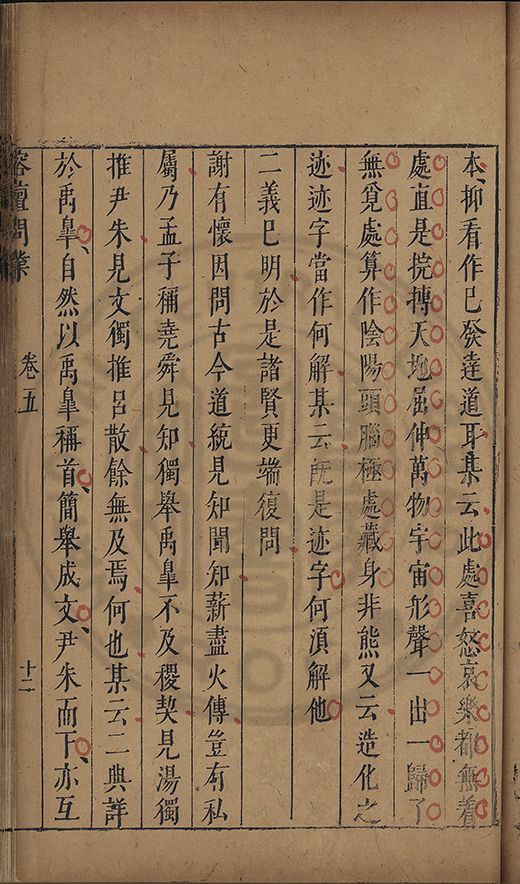 本抑看作已發達道耳某云此處喜怒哀樂都無着
處直是摶天地屈伸萬物宇宙形聲一出一歸了
無覓處算作陰陽頭腦極處藏身非熊又云造化之
迹迹字當作何解某云既是迹字何須解他
二義已明於是諸賢更端復問
謝有懷因問古今道統見知聞知薪盡火傳豈有私
屬乃孟子稱堯舜見知獨舉禹臯不及稷契見湯獨
推尹朱見文獨推呂散餘無及焉何也某云二典詳
於禹臯自然以禹臯稱首簡舉成文尹朱而下亦互
榕壇問業 卷五 十二